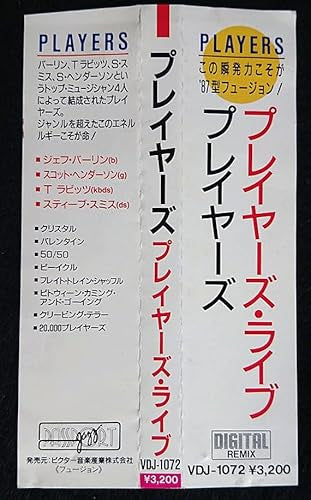 PLAYERS
バーリン、Tラビッツ、S・ス
ミス、S・ヘンダーソンとい
うトップ・ミュージシャン4人
によって結成されたプレイ
ヤーズ。
ジャンルを超えたこのエネル
ルギーこそが命!
■ジェフ・バーリン(b)
■スコット・ヘンダーソン(g)
■T ラビッツ(kbds)
■スティーブ・スミス(ds)
■クリスタル
■バレンタイン
■50/50
■ビーイクル
■フレイト・トレイン・シャッフル
■ビトウィーン・カミング・
アンド・ゴーイング
■クリーピング・テラー
■20,000プレイヤーズ
PASSPORT
jazz
発売元:ビクター音楽産業株式会社
《フュージョン》
プレイヤーズ プレイヤーズ・ライブ
VDJ-1072
¥3,200
PLAYERS
この瞬発力こそが
'87型フュージョン!
プレイヤーズ・ライブ
プレイヤーズ
DIGITAL
REMIX
VDJ-1072 ¥3,200